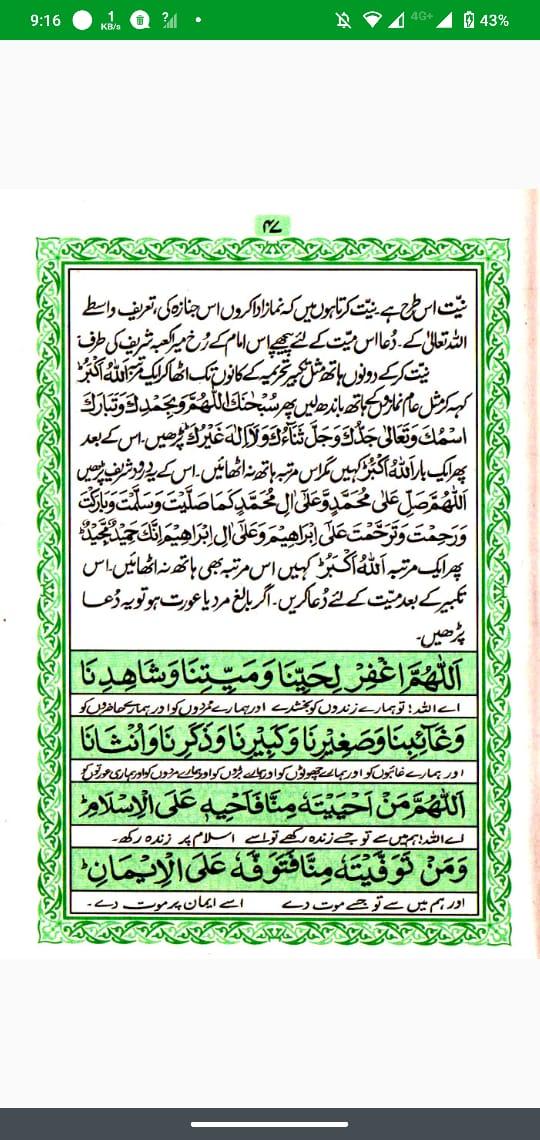 9:16
1 KB/s
4G+
43%
۴۷
نیّت اس طرح ہے۔ نیّت کرتا ہوں میں کہ نماز ادا کروں اس جنازہ کی، تعریف واسطے
اللہ تعالیٰ کے۔ دُعا اس میّت کے لئے پیچھے اس امام کے رُخ میرا کعبہ شریف کی طرف
نیّت کر کے دونوں ہاتھ مثل تکبیر تحریمہ کے کانوں تک اٹھا کر ایک مرتبہ اَللّٰهُ اَكْبَرُ
کہہ کر مثل عام نمازوں کے ہاتھ باندھ لیں پھر سُبْحٰنَكَ اللّٰهُمَّ وَبِحَمْدِكَ وَتَبَارَكَ
اسْمُكَ وَتَعَالٰى جَدُّكَ وَجَلَّ ثَنَآءُكَ وَلَآ اِلٰهَ غَيْرُكَ پڑھیں۔ اس کے بعد
پھر ایک بار اَللّٰهُ اَكْبَرُ کہیں مگر اس مرتبہ ہاتھ نہ اٹھائیں۔ اس کے بعد درود شریف پڑھیں
اَللّٰهُمَّ صَلِّ عَلٰى مُحَمَّدٍ وَّعَلٰٓى اٰلِ مُحَمَّدٍ كَمَا صَلَّيْتَ وَسَلَّمْتَ وَبَارَكْتَ
وَرَحِمْتَ وَتَرَحَّمْتَ عَلٰٓى اِبْرَاهِيْمَ وَعَلٰٓى اٰلِ اِبْرَاهِيْمَ اِنَّكَ حَمِيْدٌ مَّجِيْدٌ ط
پھر ایک مرتبہ اَللّٰهُ اَكْبَرُ کہیں اس مرتبہ بھی ہاتھ نہ اٹھائیں۔ اس
تکبیر کے بعد میّت کے لئے دُعا کریں۔ اگر بالغ مرد یا عورت ہو تو یہ دُعا
پڑھیں۔
اَللّٰهُمَّ اغْفِرْ لِحَيِّنَا وَمَيِّتِنَا وَشَاهِدِنَا
اے اللہ! تو ہمارے زندوں کو بخشدے اور ہمارے مُردوں کو اور ہمارے حاضروں کو
وَغَآئِبِنَا وَصَغِيْرِنَا وَكَبِيْرِنَا وَذَكَرِنَا وَاُنْثَانَا
اور ہمارے غائبوں کو اور ہمارے چھوٹوں کو اور ہمارے بڑوں کو اور ہمارے مردوں کو اور ہماری عورتوں کو
اَللّٰهُمَّ مَنْ اَحْيَيْتَهٗ مِنَّا فَاَحْيِهٖ عَلَى الْاِسْلَامِ ط
اے اللہ! ہم میں سے تو جسے زندہ رکھے تو اسے اسلام پر زندہ رکھ۔
وَمَنْ تَوَفَّيْتَهٗ مِنَّا فَتَوَفَّهٗ عَلَى الْاِيْمَانِ ط
اور ہم میں سے تو جسے موت دے اسے ایمان پر موت دے۔